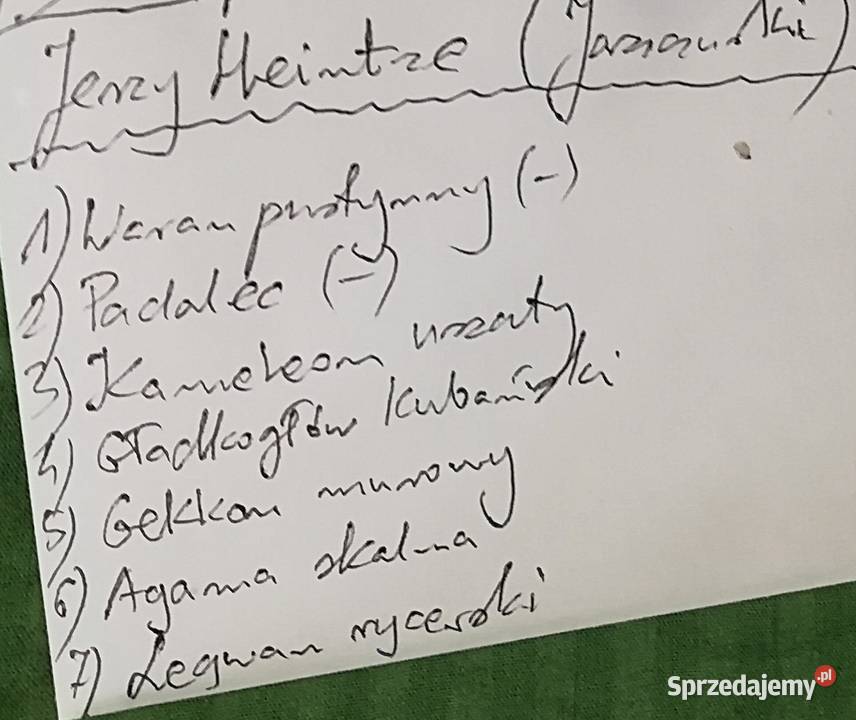 Jerzy Heintze (Jaszczurki)
1) Waran pustynny (-)
2) Padalec (-)
3) Kameleon uszaty
4) Gładkogłów kubański
5) Gekkon murowy
6) Agama skalna
7) Legwan rycerski
Sprzedajemy.pl